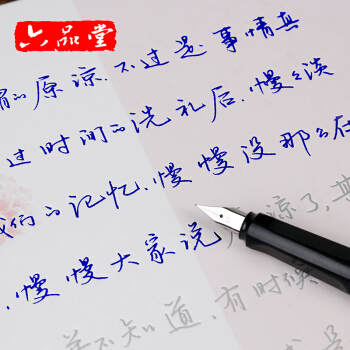 六品堂
谓的原谅.不过是事情真
过时间的洗礼后,慢慢淡
我们的记忆.慢慢没那么在
.慢慢大家说
原谅了,其
并不知道,有时候